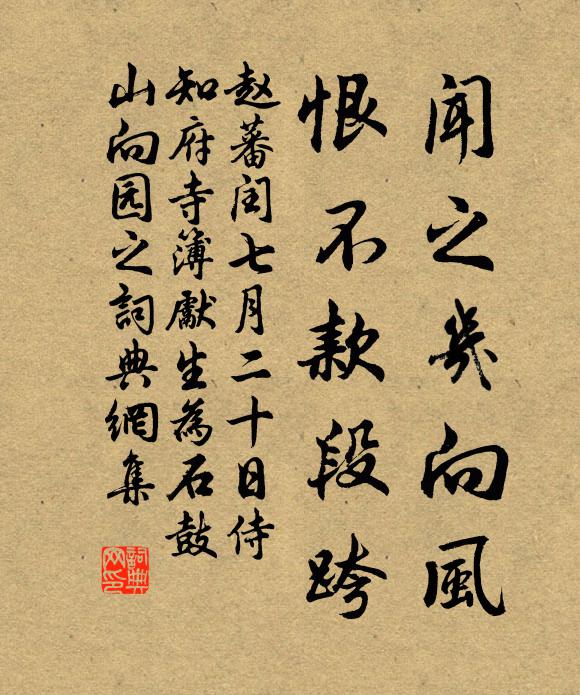 闻之几向風
恨不款段跨
赵蕃閏七月二十日侍
知府寺簿獻生為石鼓
山向园之詞典網集
詞典網印